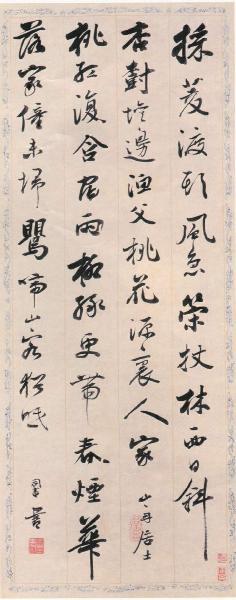 採菱渡頭風急策杖林西日斜
杏樹壇邊漁父桃花源裏人家
居士
桃紅復含宿雨柳綠更帶春煙華
落家僮未掃鸎啼山客猶眠
同書